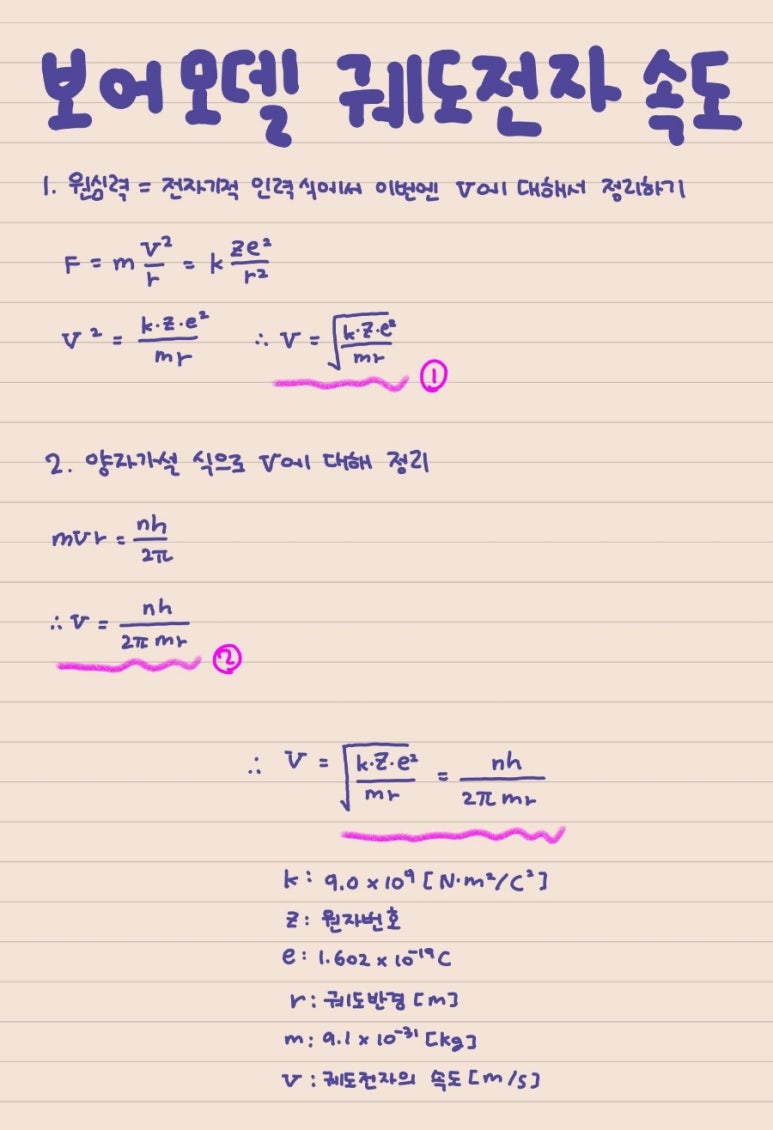 보어모델 궤도전자 속도
1. 원심력 = 전자기적 인력식에서 이번엔 V에 대해서 정리하기
F = m v²/r = k Ze²/r²
V² = k·Z·e²/mr ∴ V = √(k·Z·e²/mr) ①
2. 양자가설 식으로 V에 대해 정리
mvr = nh/2π
∴ V = nh/2π mr ②
∴ V = √(k·Z·e²/mr) = nh/2π mr
k : 9.0 × 10⁹ [N·m²/C²]
Z : 원자번호
e : 1.602 × 10⁻¹⁹ C
r : 궤도반경 [m]
m : 9.1 × 10⁻³¹ [kg]
v : 궤도전자의 속도 [m/s]